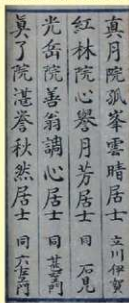 真月院孤峯雲晴居士 立川伊賀
紅林院心譽月芳居士 同 石見
光岳院善翁調心居士 同 甚左衛門
真了院湛誉秋然居士 同 六左衛門